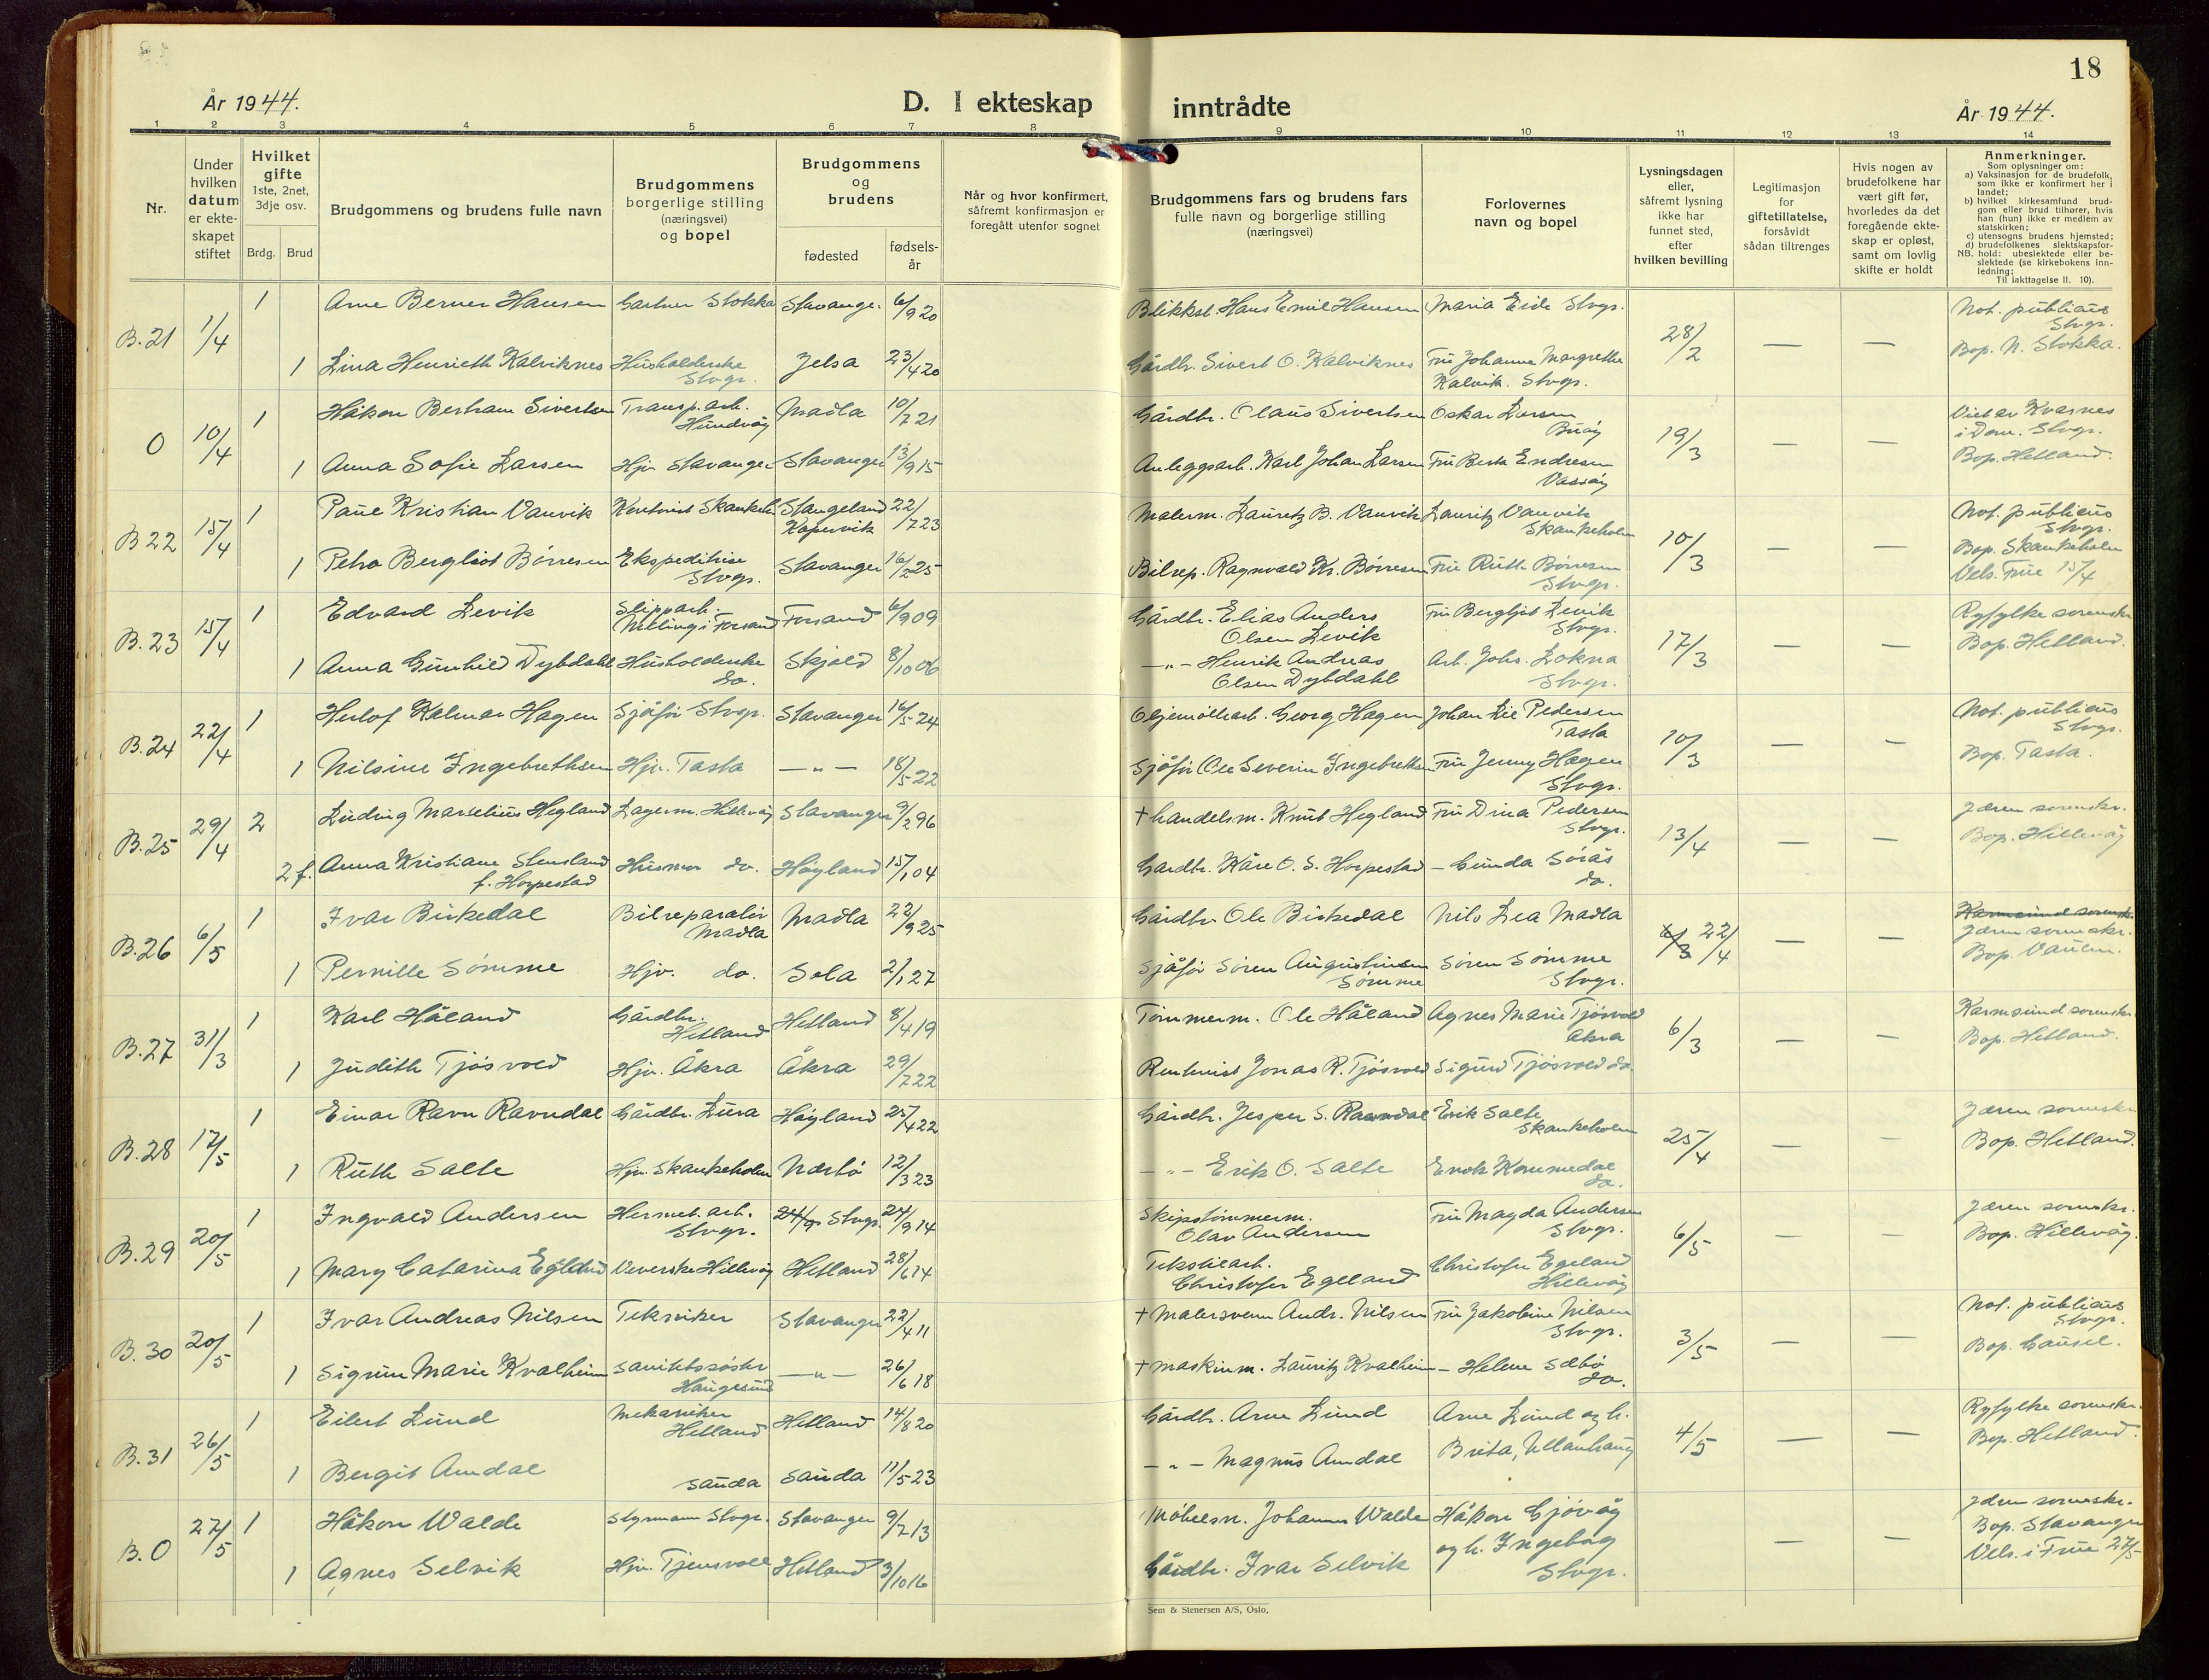 18
År 1944.
D. I ekteskap inntrådte
År 1944.
1 2 3 4 5 6 7 8 9 10 11 12 13 14
Nr.
Under hvilken datum er ekteskapet stiftet
Hvilket gifte 1ste, 2net, 3dje osv.
Brdg. Brud
Brudgommens og brudens fulle navn
Brudgommens borgerlige stilling (næringsvei) og bopel
Brudgommens og brudens
fødested
fødselsår
Når og hvor konfirmert, såfremt konfirmasjon er foregått utenfor sognet
Brudgommens fars og brudens fars fulle navn og borgerlige stilling (næringsvei)
Forlovernes navn og bopel
Lysningsdagen eller, såfremt lysning ikke har funnet sted, efter hvilken bevilling
Legitimasjon for giftetillatelse, forsåvidt sådan tiltrenges
Hvis nogen av brudefolkene har vært gift før, hvorledes da det foregående ekteskap er opløst, samt om lovlig skifte er holdt
Anmerkninger.
Som oplysninger om:
a) Vaksinasjon for de brudefolk, som ikke er konfirmert her i landet;
b) hvilket kirkesamfund brudgom eller brud tilhører, hvis han (hun) ikke er medlem av statskirken;
c) utensogns brudens hjemsted;
d) brudefolkenes slektskapsforhold: ubeslektede eller beslektede (se kirkebokens innledning;
NB. Til iakttagelse II. 10).
B.21 1/4 1 Arne Berner Hansen Gartner Stokka Stavanger 6/9 20 Blikksl. Hans Emil Hansen Maria Eide Stvgr. 28/2 — — Not. publicus Stvgr. Bop. N. Stokka.
1 Lina Henrieth Kalviknes Husholderske Stvgr. Jelsa 23/4 20 Gårdbr. Sivert O. Kalviknes Fru Johanne Margrethe Kalvik. Stvgr.
0 10/4 1 Håkon Bertram Sivertsen Transp.arb. Hundvåg Madla 10/7 21 Gårdbr. Olaus Sivertsen Oskar Larsen Buøy 19/3 — — Viet av Kvasnes i Dom. Stvgr. Bop. Hetland.
1 Anna Sofie Larsen Hjv. Stavanger Stavanger 13/9 15 Anleggsarb. Karl Johan Larsen Fru Berta Endresen Vassøy
B22 15/4 1 Paul Kristian Vanvik Kontorist Skankeholm Stangeland Kopervik 22/7 23 Malerm. Lauretz B. Vanvik Lauritz Vanvik Skankeholm 10/3 — — Not. publicus Stvgr. Bop. Skankeholm Vels. Frue 15/4
1 Petra Bergliot Børresen Ekspeditrise Stvgr. Stavanger 16/2 25 Bilrep. Ragnvald Kr. Børresen Fru Ruth Børresen Stvgr.
B.23 15/4 1 Edvard Levik Slipparb. Helling i Forsand Forsand 6/9 09 Gårdbr. Elias Anders Olsen Levik Fru Bergljot Levik Stvgr. 17/3 — — Ryfylke sorenskr. Bop. Hetland.
1 Anna Gunhild Dybdahl Husholderske do. Skjold 8/10 06 —"— Henrik Andreas Olsen Dybdahl Arb. Johs. Lokna Stvgr.
B.24 22/4 1 Herlof Kalmar Hagen Sjåfør Stvgr. Stavanger 16/5 24 Oljemøllearb. Georg Hagen Johan Lie Pedersen Tasta 10/3 — — Not. publicus Stvgr. Bop. Tasta.
1 Nilsine Ingebrethsen Hjv. Tasta —"— 18/5 22 Sjåfør Ole Severin Ingebrethsen Fru Jenny Hagen Stvgr.
B.25 29/4 2 Ludvig Marselius Hegland Lagerm. Hillevåg Stavanger 9/2 96 + handelsm. Knut Hegland Fru Dina Pedersen Stvgr. 13/4 — — Jæren sorenskr. Bop. Hillevåg
2 f. Anna Kristiane Stensland f. Horpestad Husmor do. Høyland 15/1 04 Gardbr. Kåre O. S. Horpestad — Gunda Sørås do.
B.26 6/5 1 Ivar Birkedal Bilreparatør Madla Madla 22/9 25 Gårdbr. Ole Birkedal Nils Lea Madla 22/4 — — Karmsund sorenskr. Jæren sorenskr. Bop. Vaulen.
1 Pernille Sømme Hjv. do. Sola 2/1 27 Sjåfør Søren Augustinsen Sømme Søren Sømme Stvgr.
B.27 31/3 1 Karl Håland Gårdbr. Hetland Hetland 8/4 19 Tømmerm. Ole Håland Agnes Marie Tjøsvold Åkra 6/3 — — Karmsund sorenskr. Bop. Hetland.
1 Judith Tjøsvold Hjv. Åkra Åkra 29/7 22 Rentenist Jonas R. Tjøsvold Sigurd Tjøsvold do.
B.28 17/5 1 Einar Ravn Ravndal Gårdbr. Lura Høyland 25/4 22 Gårdbr. Jesper S. Ravndal Erik Salte Skankeholm 25/4 — — Jæren sorenskr. Bop. Hetland.
1 Ruth Salte Hjv. Skankeholm Nærbø 12/3 23 —"— Erik O. Salte Enok Kommedal do.
B.29 20/5 1 Ingvald Andersen Hermet.arb. Stvgr. 24/9 Stvgr. 24/9 14 Skipstømmerm. Olav Andersen Fru Magda Andersen Stvgr. 6/5 — — Jæren sorenskr. Bop. Hillevåg.
1 Mary Catarina Egeland Veverske Hillevåg Hetland 28/6 14 Tekstilarb. Christofer Egeland Christofer Egeland Hillevåg
B.30 20/5 1 Ivar Andreas Nilsen Tekniker Stavanger 22/4 11 + Malersvenn Andr. Nilsen Fru Jakobine Nilsen Stvgr. 3/5 — — Not. publicus Stvgr. Bop. Gausel.
1 Sigrun Marie Kvalheim Sanitetssøster Haugesund —"— 26/6 18 + maskinm. Lauritz Kvalheim — Helene Sæbø do.
B.31 26/5 1 Eilert Lund Mekaniker Hetland Hetland 14/8 20 Gårdbr. Arne Lund Arne Lund og h. Brita, Ullanhaug 4/5 — — Ryfylke sorenskr. Bop. Hetland.
1 Bergit Amdal Sauda Sauda 11/5 23 —"— Magnus Amdal
B.0 27/5 1 Håkon Walde Styrmann Stvgr. Stavanger 9/7 13 Møbelsn. Johannes Walde Håkon Gjøvåg og h. Ingeborg Stvgr. — — Jæren sorenskr. Bop. Stavanger Vels. i Frue 27/5
1 Agnes Selvik Hjv. Tjensvoll Hetland 3/10 16 Gårdbr. Ivar Selvik
Sem & Stenersen A/S, Oslo.